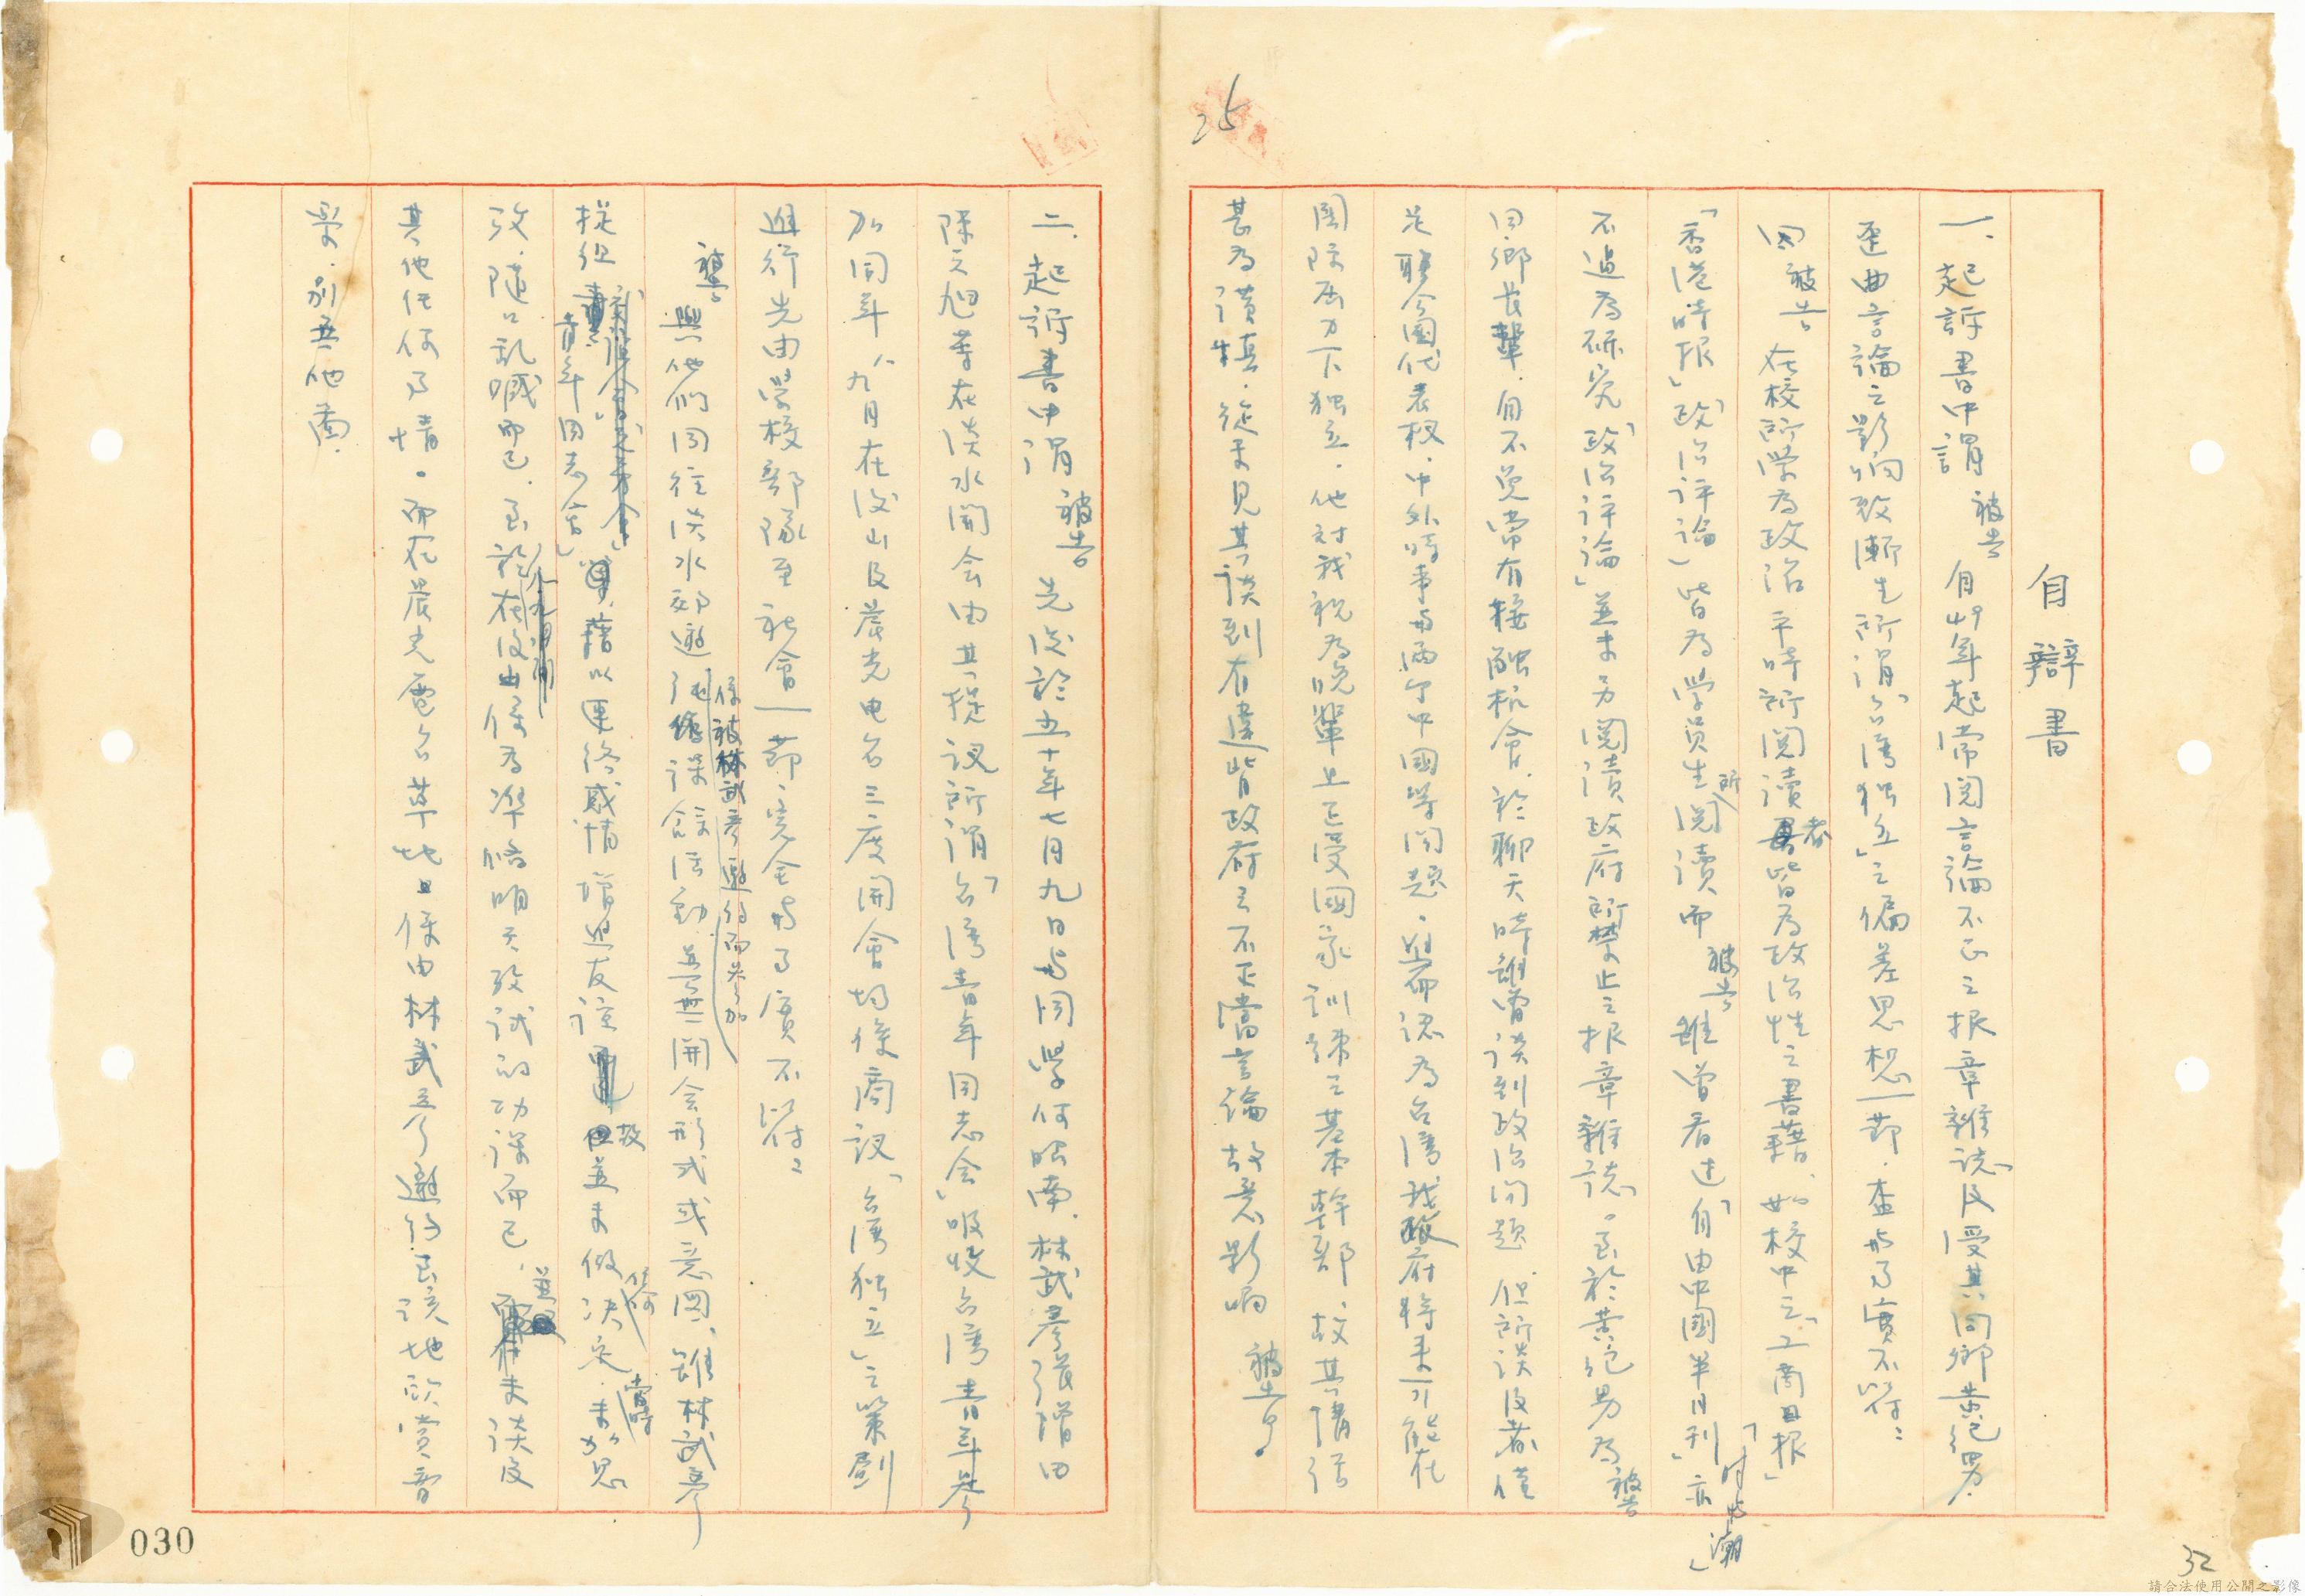 自辯書
一、起訴書中謂被告自49年起常閱言論不正之報章雜誌及受其同鄉黃紀男.
歪曲言論之影响致漸生所謂「台湾独立」之偏差思想一節.查與事實不符:
因被告在校所学為政治平時所閱讀者皆為政治性之書藉、如校中之「工商日报」「时与潮」
「香港時报」「政治评論」皆為学員生所閱讀而被告雖曾看过「自由中國半月刊」亦
不過為研究「政治评論」並未另閱讀政府所禁止之报章雜誌。至於黃紀男為被告
同鄉長輩.自不免常有接触机會.於聊天時雖曾談到政治问題 但所談及者僅
是聯合國代表权.中外時事与两个中國等问題.並而認為台湾我政府將来可能在
國際压力下独立.他対我視為晚輩且正受國家训練之基本幹部、故其講话
甚為謹慎.從未見其談到有違背政府之不正當言論故意影响被告。
二.起訴書中謂被告先後於五十年七月九日与同学何昭南.林武彥張增田
陳文旭等在淡水開会由其提议所謂「台湾青年同志会」吸收台湾青年參
加同年八、九月在後山及晨光电台三度開會均後商议「台湾独立」之策劃
進行先由学校部隊至社會一節、完全與事實不符:
被告與他們同往淡水郊遊係被林武彥邀约而參加課餘活動並無開会形式或意図、雖林武彥
提组「青年同志會」藉以連終感情增進友誼故並未做任何決定.當時未加思
攷.隨口乱喊而已.至於在後山係為準俻明天攷試的功課而已.並未談及
其他任何事情。而在晨光電台草地上係由林武彥邀约至该地欣賞音
樂.別無他啚.
25
030
32
請合法使用公開之影像